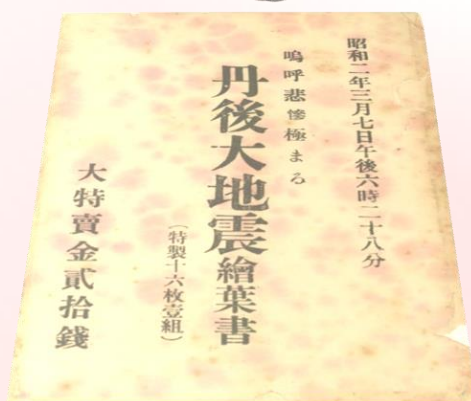 昭和二年三月七日午後六時二十八分
嗚呼悲惨極まる
丹後大地震繪葉書
（特製十六枚壹組）
大特賣金貳拾錢